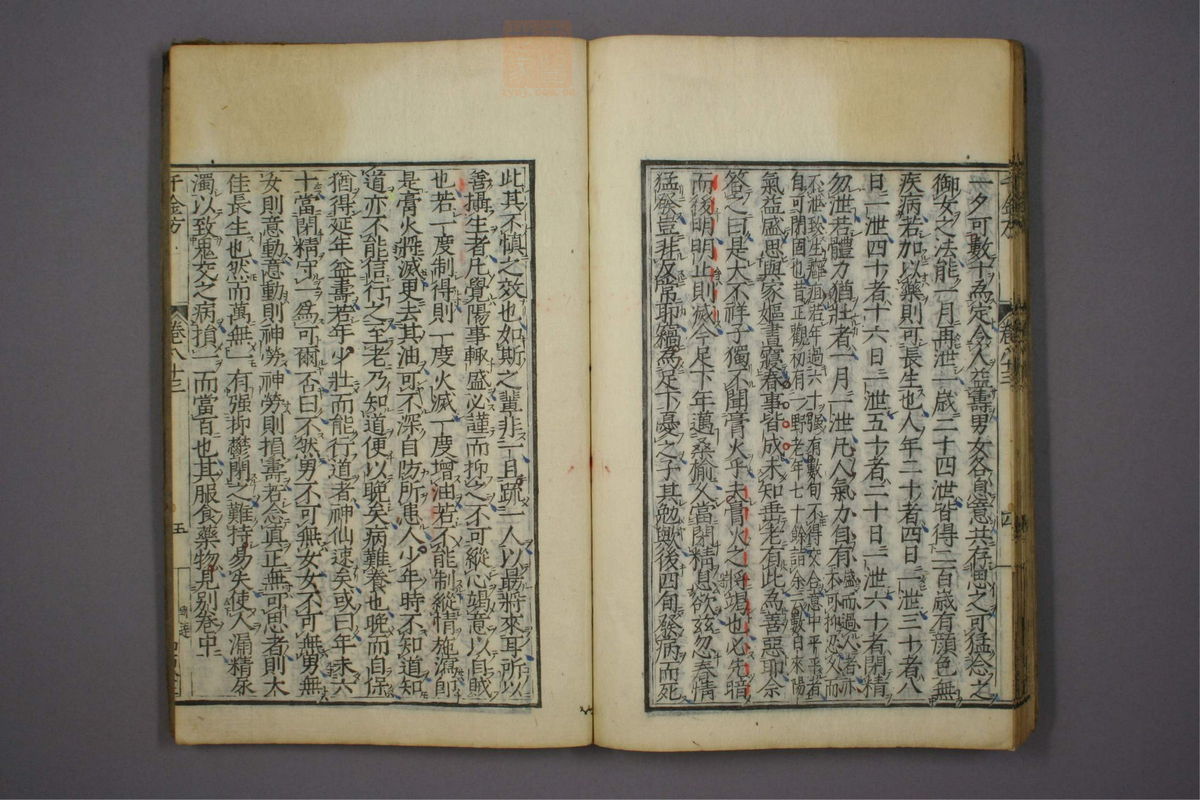 一夕可數十爲定令人益壽男女各息意共存思之可猛念之
御女之法能一月再泄一歳二十四泄皆得二百歳有顔色無
疾病若加以藥則可長生也人年二十者四日一泄三十者八
日一泄四十者十六日一泄五十者二十日一泄六十者閉精
勿泄若體力猶壯者一月一泄凡人氣力自有
盛而過人者亦不可抑忍久而
不泄致生癰疽若年過六十強有數旬不得交合意中平平者
自可閉固也昔正觀初有一野老年七十餘詣余云數日來陽
氣益盛思與家嫗晝寢春事皆成未知垂老有此爲善惡耶余
答之曰是大不祥子獨不聞膏火乎夫膏火之將竭也必先暗
而後明明止則滅今足下年邁桑楡久當閉精息欲玆忽春情
猛發豈非反常耶竊爲足下憂之子其勉歟後四旬發病而死
千金方
卷八十三
四
此其不慎之效也如斯之輩非一且疏一人以最將來耳所以
善攝生者凡覺陽事輙盛必謹而抑之不可縱心竭意以自賊
也若一度制得則一度火滅一度增油若不能制縱情施瀉即
是膏火將滅更去其油可不深自防所患人少年時不知道知
道亦不能信行之至老乃知道便以晩矣病難養也晩而自保
猶得延年益壽若年少壯而能行道者神仙速矣或曰年未六
十當閉精守一爲可爾否曰不然男不可無女女不可無男無
女則意動意動則神勞神勞則損壽若念眞正無可思者則大
佳長生也然而萬無一有强抑鬱閉之難持易失使人漏精尿
濁以致鬼交之病損一而當百也其服食藥物見別卷中
千金方
卷八十三
五